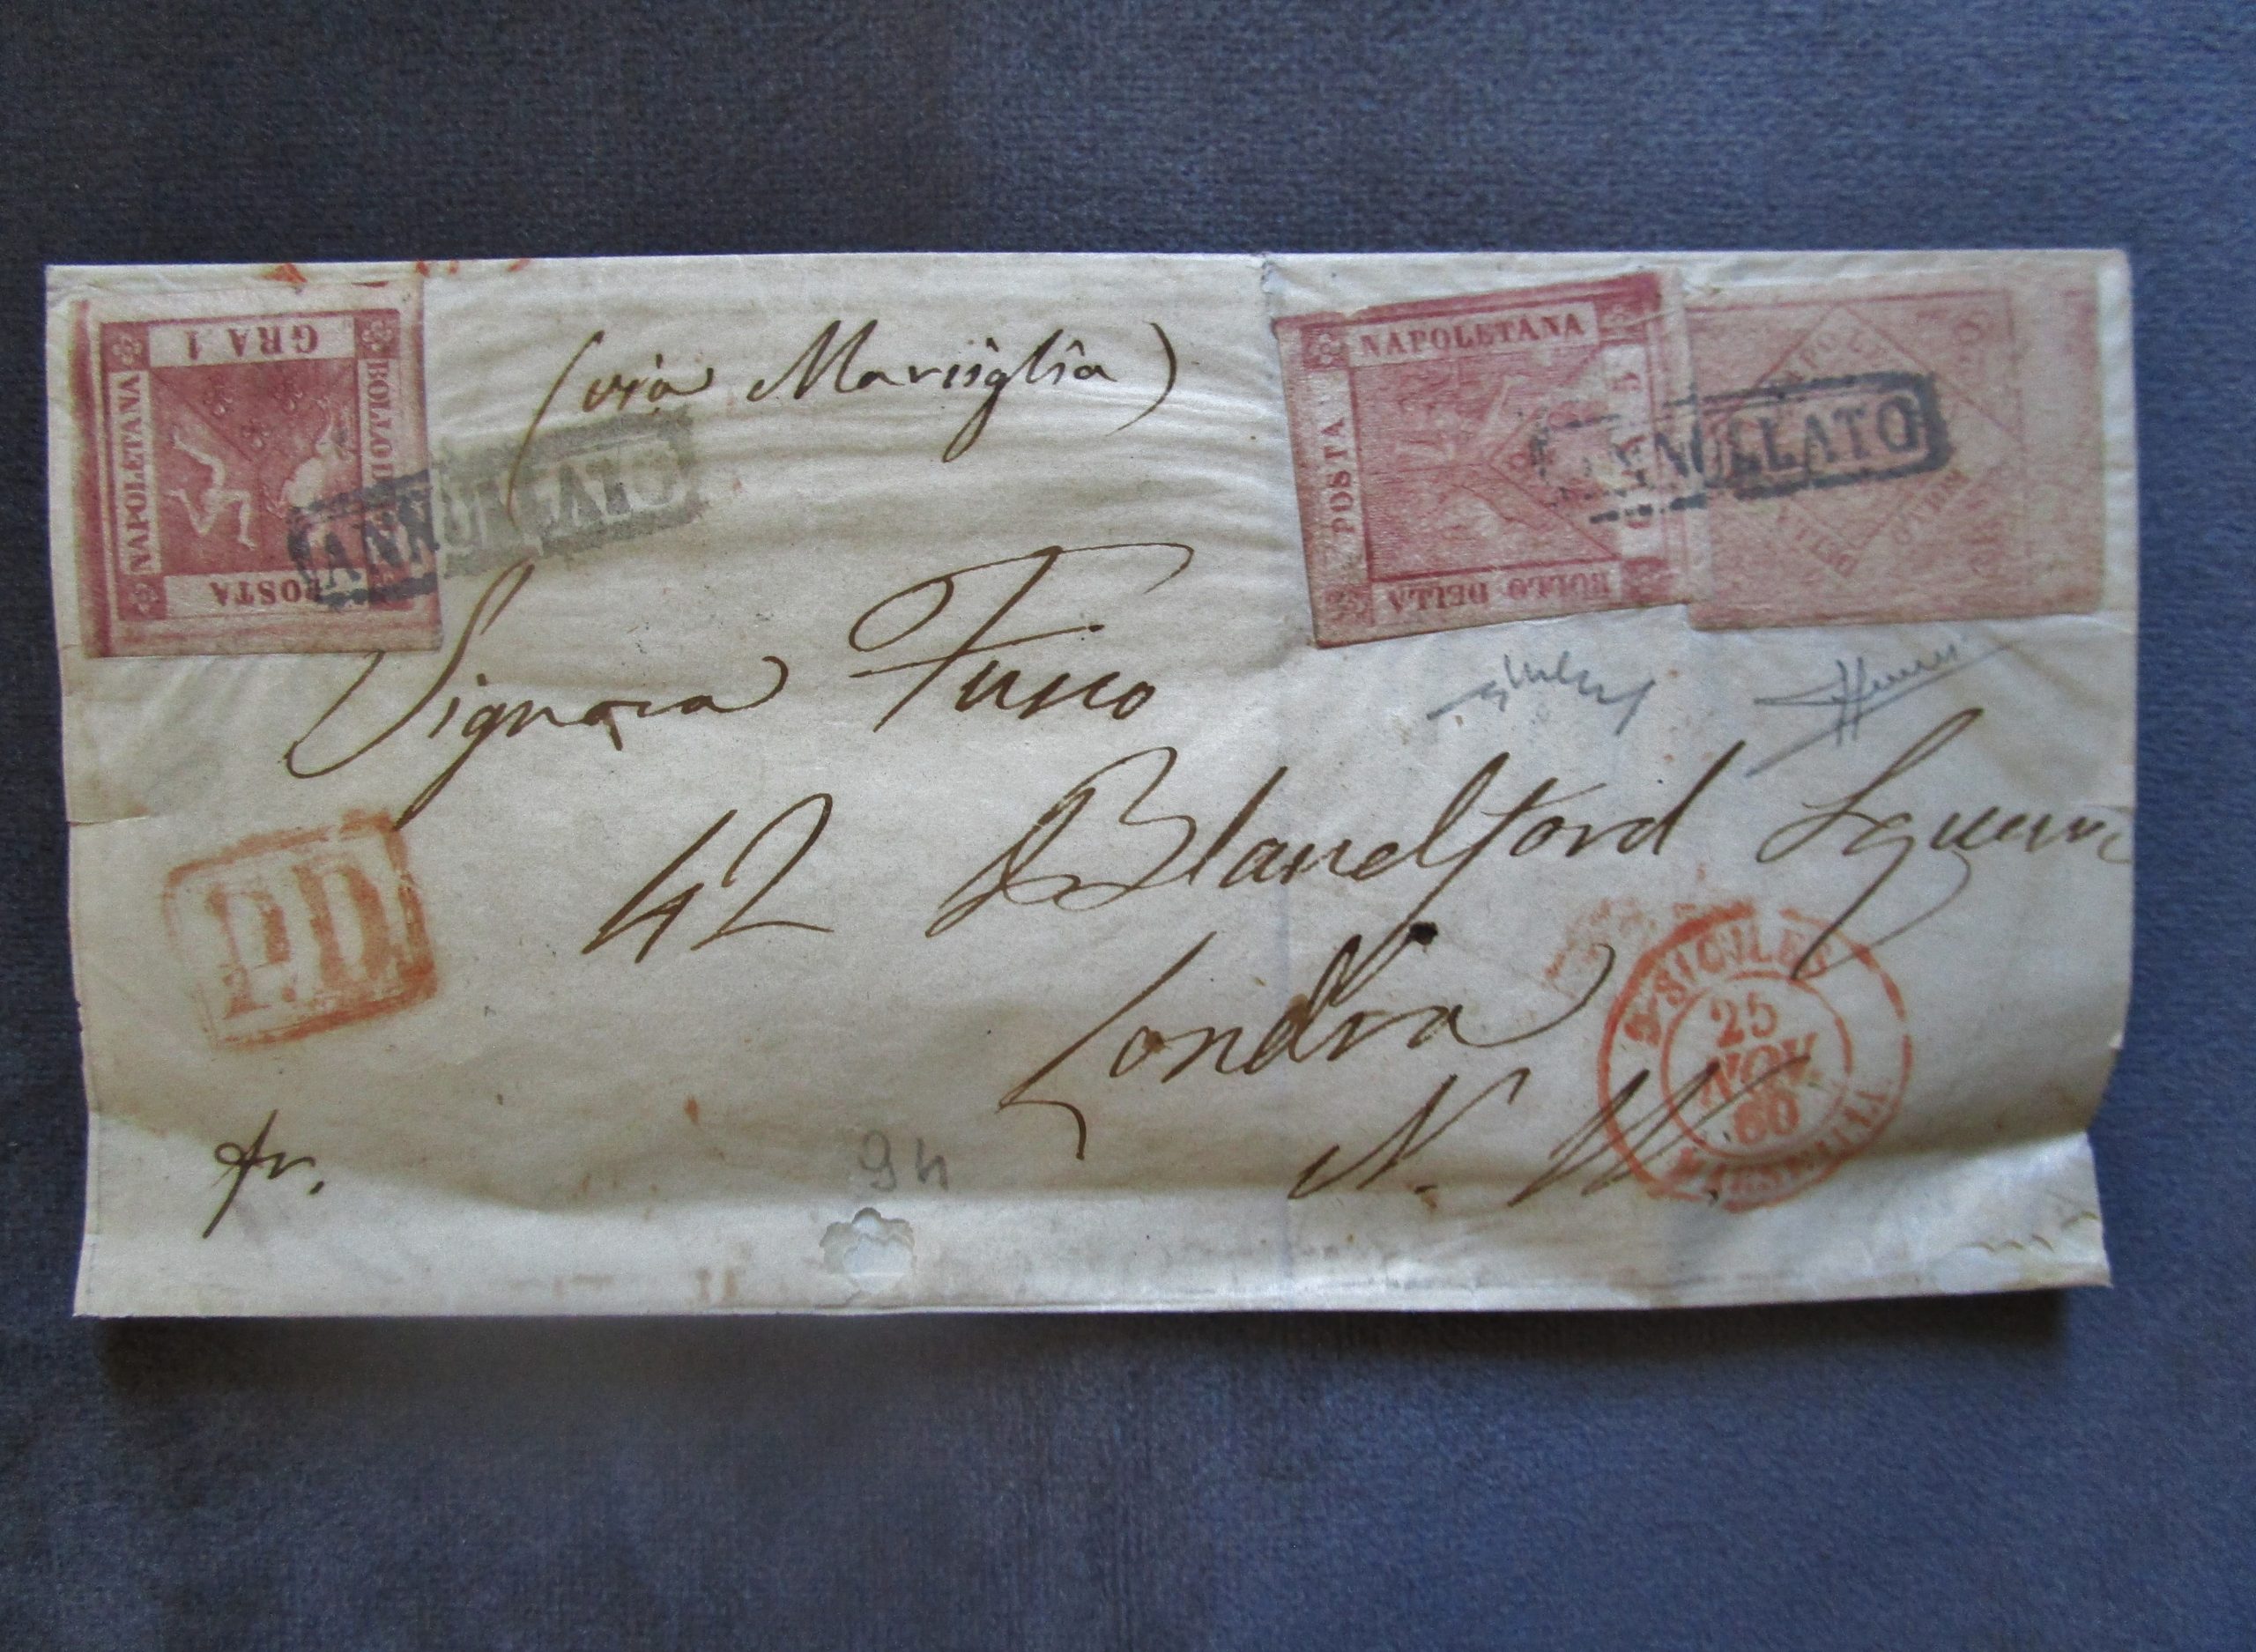 GRA.1
NAPOLETANA
POSTA
ANNULLATO
(via Marsiglia)
NAPOLETANA
POSTA
BOLLO DELLA
G 5
ANNULLATO
Signora Fusco
42 Blandford Square
Londra
N. W.
P.D.
fr.
94
2-SICILES
25
NOV.
60
MARSEILLE